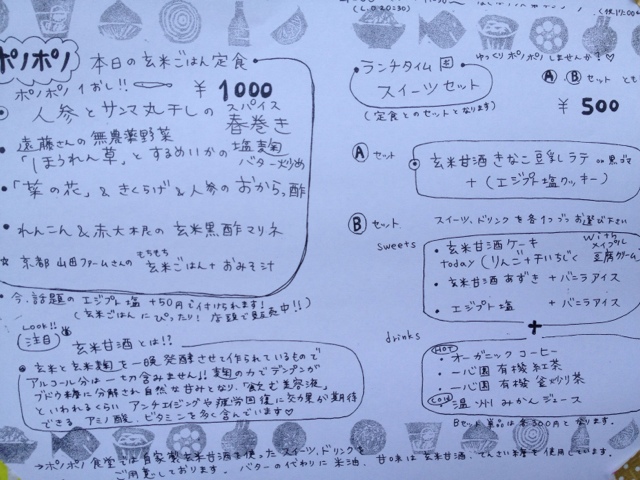 ポノポノ 本日の玄米ごはん定食
ポノポノ イチおし!! ¥1000
スパイス
• 人参とサンマ丸干しの春巻き
遠藤さんの無農薬野菜
• 「ほうれん草」とするめいかの塩麹
バター炒め
• 「菜の花」&きくらげ&人参のおからっ酢
• れんこん&赤大根の玄米黒酢マリネ
もちもち
☆ 京都 山田ファームさんの玄米ごはん+おみそ汁
• 今、話題のエジプト塩 +50円で付けられます!
(玄米ごはんにぴったり! 店頭で販売中!!)
LOOK!!
注目 玄米甘酒とは!?
• 玄米と玄米麹を一晩発酵させて作られているもので
アルコール分は一切含みません!! 麹の力でデンプンが
ブドウ糖に分解され自然な甘みとなり、「飲む美容液」
といわれるくらい アンチエイジングや疲労回復に効果が期待
できる アミノ酸、ビタミンを多く含んでいます♡
(L.O 20:30)
ゆっくりポノポノしませんか?♡
ランチタイム
スイーツセット
Ⓐ.Ⓑセット とも
¥500
(定食とのセットとなります)
Ⓐ セット
玄米甘酒 きなこ 豆乳ラテ
+(エジプト塩クッキー)
Ⓑ セット. スイーツ、ドリンクを各1つづつお選び下さい
sweets
• 玄米甘酒ケーキ with メイプル
today(りんご+干いちじく 豆腐クリーム)
• 玄米甘酒あずき + バニラアイス
• エジプト塩 + バニラアイス
+
drinks
HOT
• オーガニックコーヒー
• 一心園 有機 紅茶
• 一心園 有機 釜炒り茶
COLD
• 温州みかんジュース
Bセット 単品は各300円となります。
→ポノポノ食堂では自家製玄米甘酒を使ったスイーツ、ドリンクを
ご用意しております。 バターの代わりに米油、甘味は玄米甘酒、てんさい糖を使用しています。